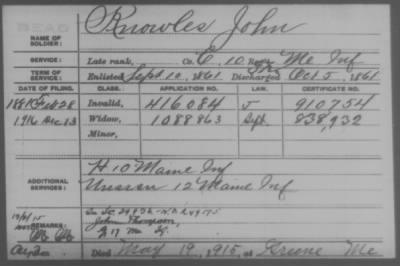 DEAD
NAME OF SOLDIER: Knowles John
SERVICE: Late rank, Co. C, 10 Me Inf
TERM OF SERVICE: Enlisted Sept. 10, 1861 Discharged Oct 5, 1861
DATE OF FILING. CLASS. APPLICATION NO. LAW. CERTIFICATE NO.
Feb 28 Invalid, 416084 J 910754
1916 Dec 13 Widow, 1088863 838,932
Minor,
ADDITIONAL SERVICES: H 10 Maine Inf
Unassn 12 Maine Inf
REMARKS:
John Thompson,
17 Me
Died May 19, 1915, at Greene Me